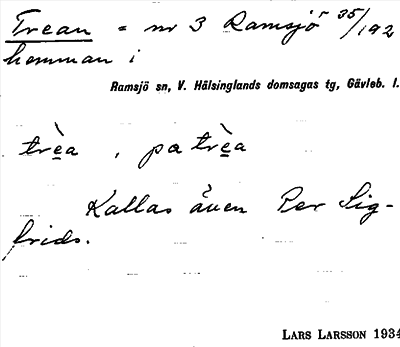 Trean = nr 3 Ramsjö 35/192
hemman i
Ramsjö sn, V. Hälsinglands domsagas tg, Gävleb. l.
trèa , pa trèa
Kallas även Per Sig-
frids.
LARS LARSSON 1934